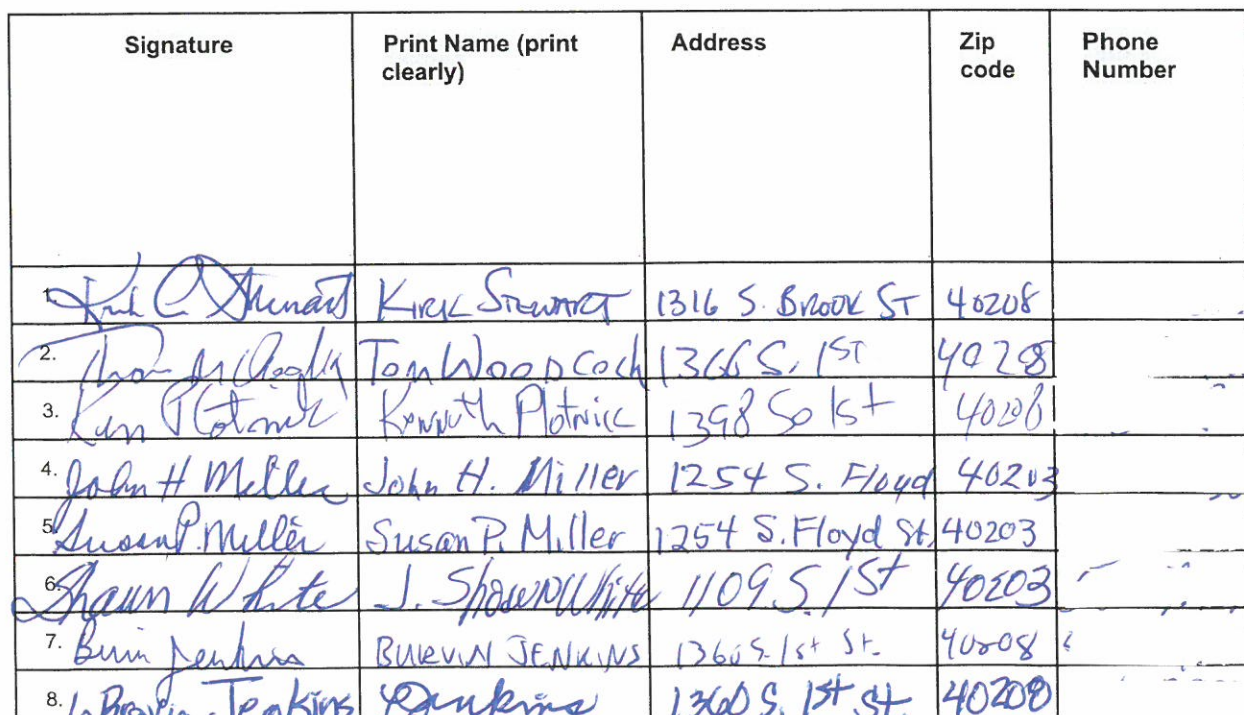 Signature Print Name (print clearly) Address Zip code Phone Number
1. Kirk C Stewart KIRK STEWART 1316 S. BROOK ST 40208
2. Tom Woodcock 1366 S. 1ST 40208
3. Ken Plotnick Kenneth Plotnick 1398 So 1st 40208
4. John H Miller John H. Miller 1254 S. Floyd 40203
5. Susan P. Miller Susan P. Miller 1254 S. Floyd St. 40203
6. Shawn White J. Shawn White 1109 S. 1St 40203
7. Jenkins BURVIN JENKINS 1360 S. 1st St. 40208
8. Jenkins Jenkins 1360 S. 1st St. 40208